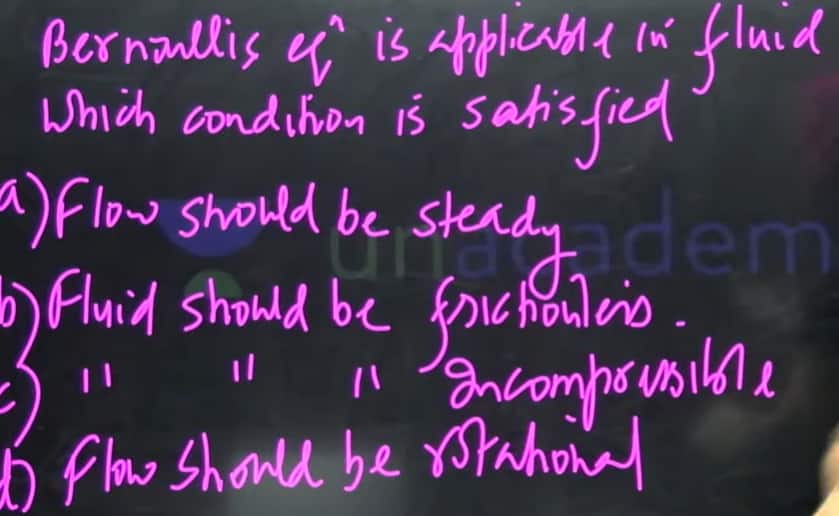 Bernoullis eqn is applicable in fluid
which condition is satisfied
a) Flow should be steady
unacadem
b) Fluid should be frictionless.
c) " " " Incompressible
d) Flow should be rotational